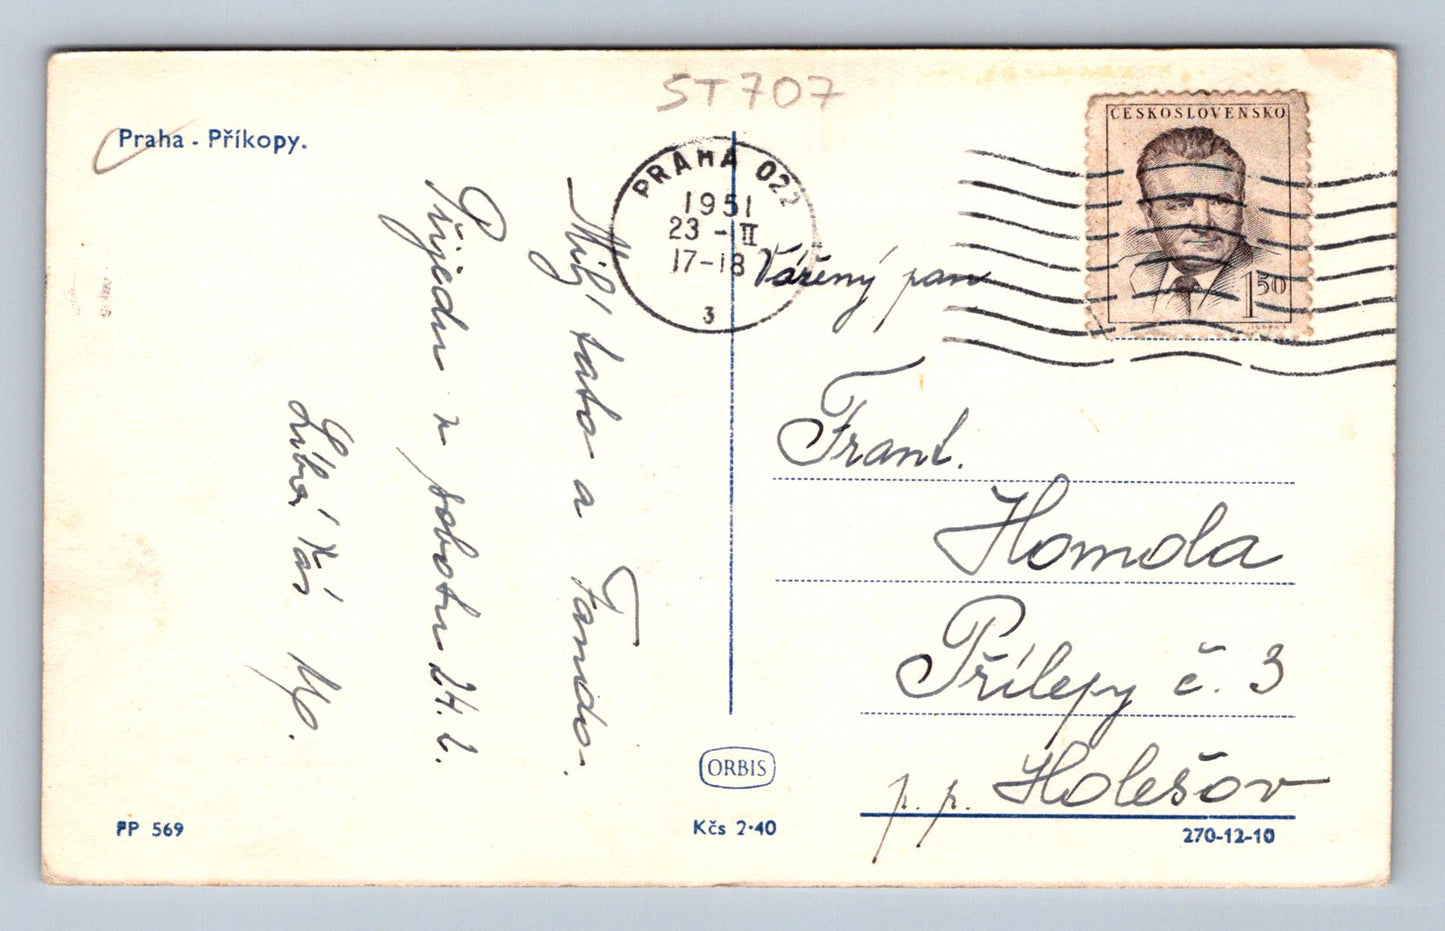 ST707
Praha - Příkopy.
PRAHA 022
1951
23 -II
17-18
3
ČESKOSLOVENSKO
1 50
Milý tato a Fando.
Přijedu v sobotu 24. 2.
Líbá Vás
Vážený pan
Frant.
Homola
Přílepy č. 3
p. p. Holešov
ORBIS
PP 569
Kčs 2·40
270-12-10